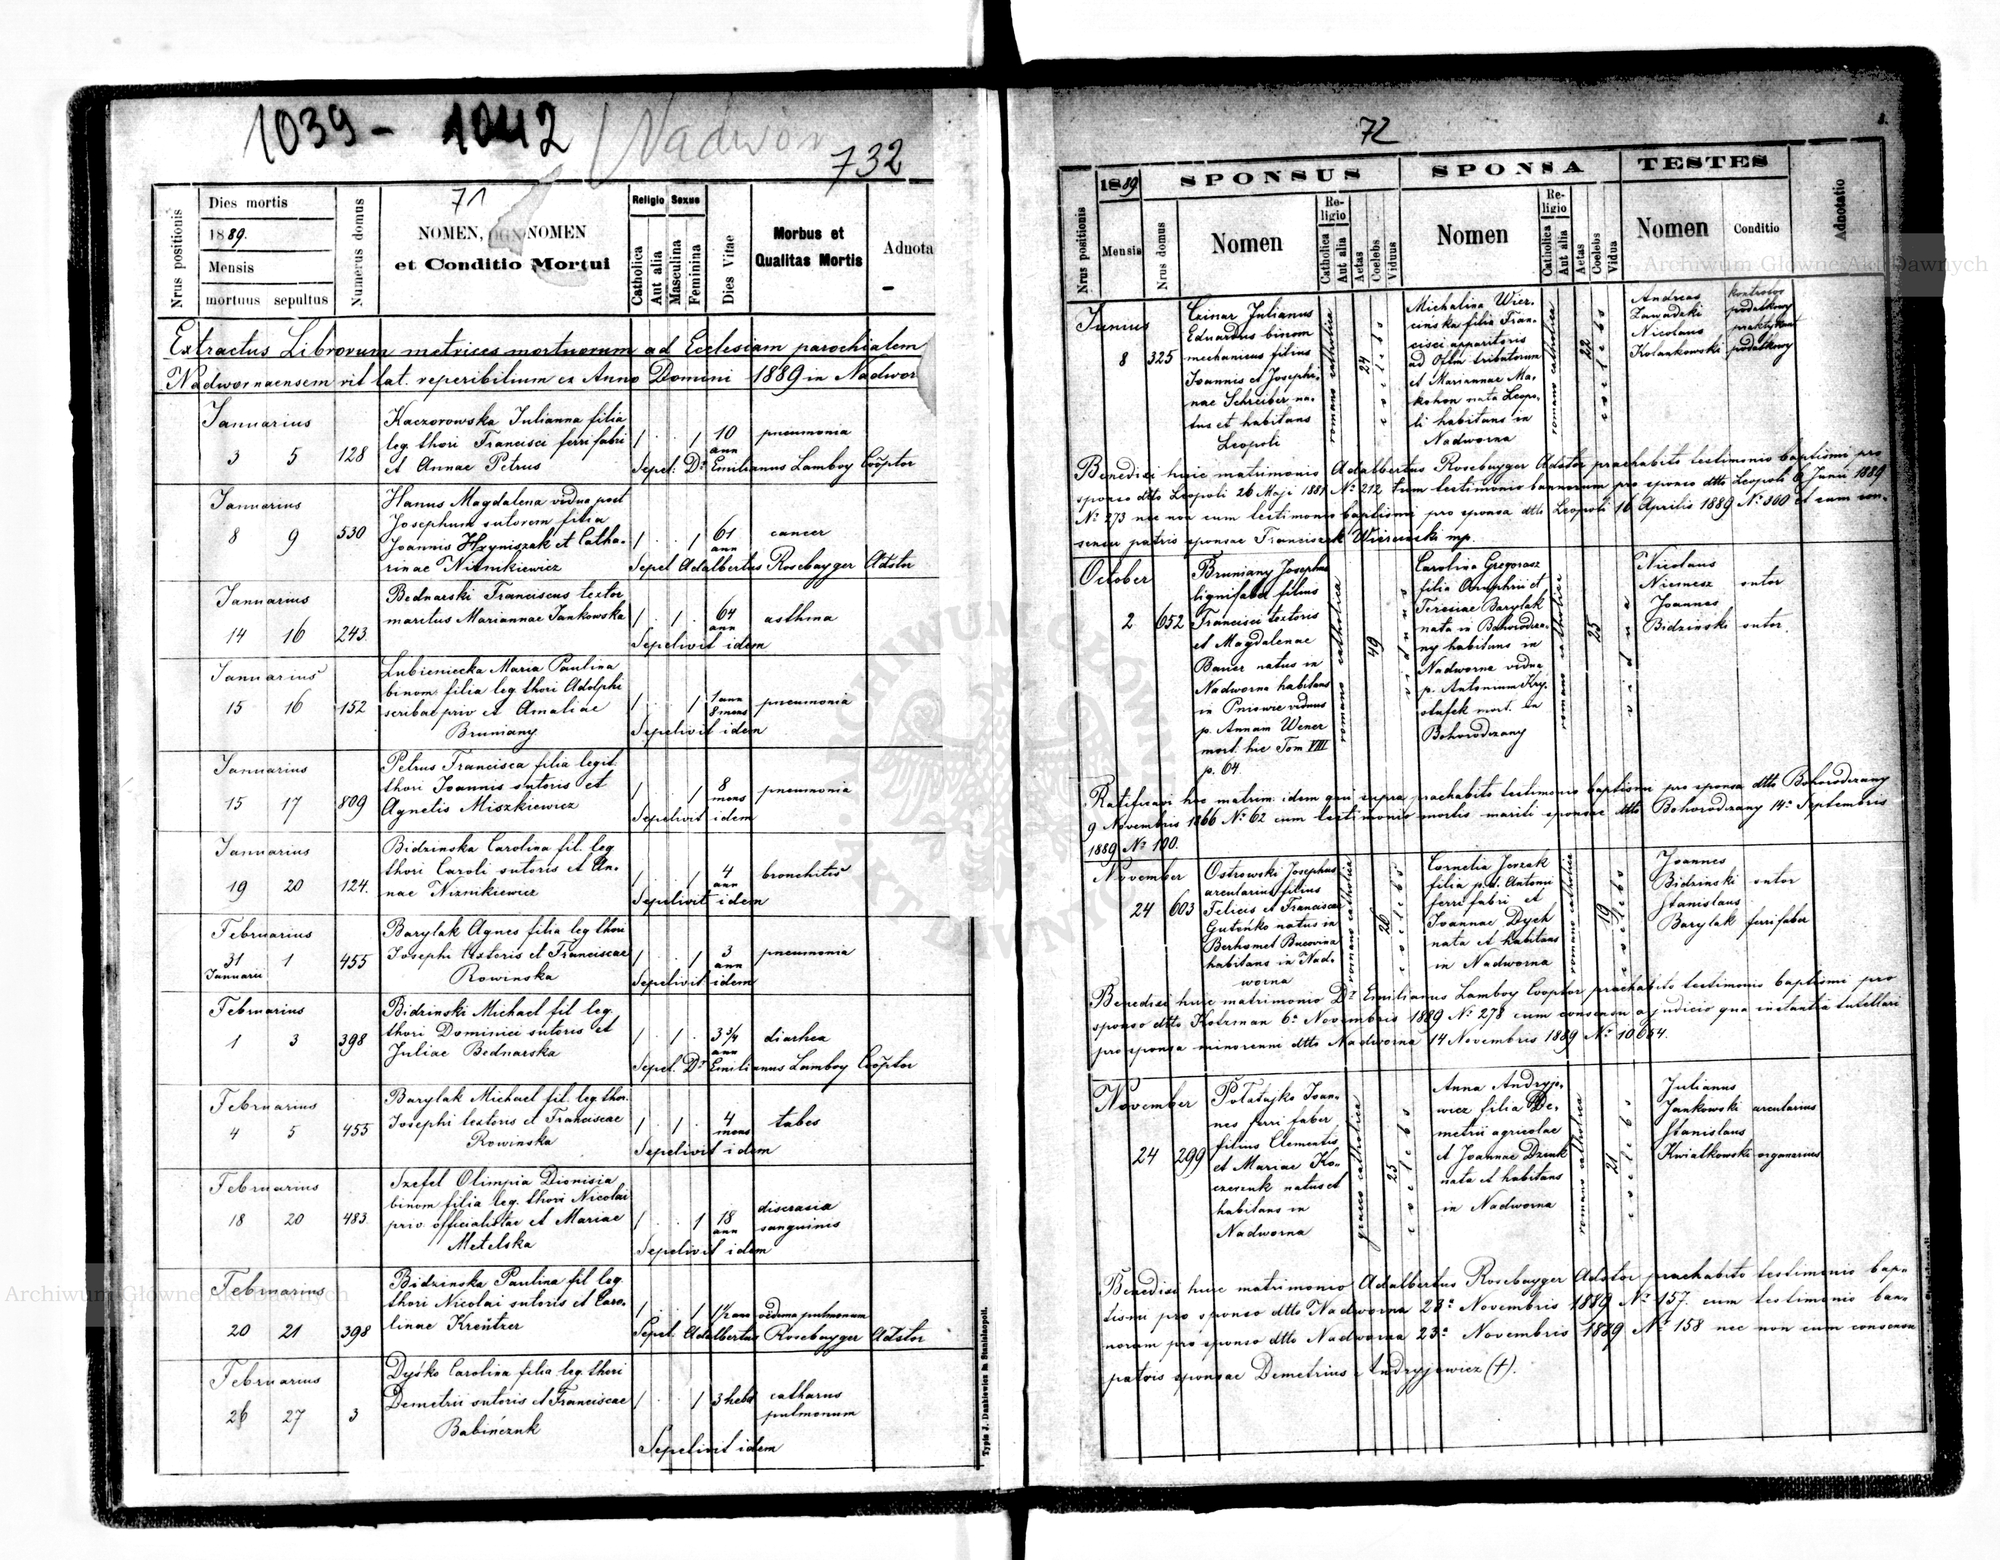 1039 - 1042 / Nadwor
732
71
Nrus positionis
Dies mortis
1889.
Mensis
mortuus sepultus
Numerus domus
NOMEN, COGNOMEN
et Conditio Mortui
Religio
Catholica
Aut alia
Sexus
Masculina
Feminina
Dies Vitae
Morbus et
Qualitas Mortis
Adnota
Extractus Librorum metrices mortuorum ad Ecclesiam parochialem
Nadwornaensem rit lat. reperibilium ex Anno Domini 1889 in Nadwor
Januarius
3 5 128
Kaczorowska Julianna filia
leg thori Francisci ferri fabri
et Annae Petrus
1 . . 1 10 ann pneumonia
Sepel: Dr Emilianus Lamboy Cooptor
Januarius
8 9 530
Hanus Magdalena vidua post
Josephum sutorem filia
Joannis Hryniszak et Catha-
rinae Nitnikiewicz
1 . . 1 61 ann cancer
Sepel Adalbertus Rosebayger Adstor
Januarius
14 16 243.
Bednarski Franciscus textor
maritus Mariannae Jankowska
1 . 1 . 64 ann asthma
Sepelivit idem
Januarius
15 16 152
Lubieniecka Maria Paulina
binom. filia leg. thori Adolphi
scribae priv et Amaliae
Bruniany
1 . . 1 1 ann 8 mens pneumonia
Sepelivit idem
Januarius
15 17 809
Petrus Francisca filia legit.
thori Joannis sutoris et
Agnetis Miszkiewicz
1 . . 1 8 mens pneumonia
Sepelivit idem
Januarius
19 20 124.
Bidzinska Carolina fil. leg
thori Caroli sutoris et An-
nae Niznikiewicz
1 . . 1 4 ann bronchitis
Sepelivit idem
Februarius
31 Januarii 1 455
Barylak Agnes filia leg thori
Josephi textoris et Franciscae
Rowinska
1 . . 1 3 ann pneumonia
Sepelivit idem
Februarius
1 3 398
Bidzinski Michael fil leg.
thori Dominici sutoris et
Juliae Bednarska
1 . 1 . 3 3/4 ann diarhea
Sepel. Dr Emilianus Lamboy Cooptor
Februarius
4 5 455
Barylak Michael fil. leg. thor.
Josephi textoris et Franciscae
Rowinska
1 . 1 . 4 mens tabes
Sepelivit idem
Februarius
18 20 483.
Szefel Olimpia Dionisia
binom filia leg. thori Nicolai
priv. officialistae et Mariae
Metelska
1 . . 1 18 ann discrasia
sanguinis
Sepelivit idem
Februarius
20 21 398
Bidzinska Paulina fil leg.
thori Nicolai sutoris et Caro-
linae Kreutzer
1 . . 1 1 1/2 ann oedema pulmonum
Sepel. Adalbertus Rosebayger Adstor
Februarius
26 27 3
Dyśko Carolina filia leg. thori
Demetrii sutoris et Franciscae
Babińczuk
1 . . 1 3 hebd catharus
pulmonum
Sepelivit idem
Typis J. Dankiewicz in Stanislaopoli.
72
Nrus positionis
1889
Mensis
SPONSUS
Nrus domus
Nomen
Religio
Catholica
Aut alia
Aetas
Coelebs
Viduus
SPONSA
Nomen
Religio
Catholica
Aut alia
Aetas
Coelebs
Vidua
TESTES
Nomen
Conditio
Adnotatio
Junius
8 325
Czinar Julianus
Eduardus binom
mechanicus filius
Joannis et Josephi-
nae Schreiber na-
tus et habitans
Leopoli
romano catholica
24
coelebs
Michalina Wier-
cinska filia Fran-
cisci apparitoris
ad Offm tributorum
et Mariannae Ma-
kohon nata Leopo-
li habitans in
Nadworna
romano catholica
22
coelebs
Andreas
Zawadzki
Nicolaus
Kolankowski
kontrolor
podatkowy
praktykant
podatkowy
Benedixi huic matrimonio Adalbertus Rosebayger Adstor praehabito testimonio baptismi pro
sponso dtto Leopoli 26 Maji 1881 No 212 tum testimonio bannorum pro sponso dtto Leopoli 6 Junii 1889
No 273 nec non cum testimonio baptismi pro sponsa dtto Leopoli 16 Aprilis 1889 No 360 et cum con-
sensu patris sponsae Franciszek Wiercinski mp.
October
2 652
Bruniany Josephus
lignifaber filius
Francisci textoris
et Magdalenae
Bauer natus in
Nadworna habitans
in Pniowie viduus
p. Annam Wener
mort. hic Tom VIII
p. 64.
romano catholica
49
viduus
Carolina Gregorasz
filia Onuphrii et
Teresiae Barylak
nata in Bohorodcza-
ny habitans in
Nadworna vidua
p. Antonium Kry-
sztafek mort. in
Bohorodczany
romano catholica
25
vidua
Nicolaus
Niemesz sutor
Joannes
Bidzinski sutor.
Ratificavi hoc matrim. idem qui supra praehabito testimonio baptismi pro sponsa dtto Bohorodczany
9 Novembris 1866 No 62 cum testimonio mortis mariti sponsae dtto Bohorodczany 14a Septembris
1889 No 100.
November
24 603
Ostrowski Josephus
arcularius filius
Felicis et Franciscae
Gutenko natus in
Berhomet Bucovina
habitans in Nad-
worna
romano catholica
26
coelebs
Cornelia Jerzak
filia p.d. Antonii
ferri fabri et
Joannae Dych
nata et habitans
in Nadworna
romano catholica
19
coelebs
Joannes
Bidzinski sutor
Stanislaus
Barylak ferri faber
Benedixi huic matrimonio Dr Emilianus Lamboy Cooptor praehabito testimonio baptismi pro
sponso dtto Kotzman 6a Novembris 1889 No 278 cum consensu a judicio qua instantia tutellari
pro sponsa minorenni dtto Nadworna 14 Novembris 1889 No 10.664.
November
24 299
Potatajko Joan-
nes ferri faber
filius Clementis
et Mariae Ko-
czerenk natus et
habitans in
Nadworna
graeco catholica
25
coelebs
Anna Andryje-
wicz filia De-
metrii agricolae
et Joannae Dzenk
nata et habitans
in Nadworna
romano catholica
21
coelebs
Julianus
Jankowski arcularius
Stanislaus
Kwiatkowski organarius
Benedixi huic matrimonio Adalbertus Rosebayger Adstor praehabito testimonio bap-
tismi pro sponso dtto Nadworna 23a Novembris 1889 No 157. cum testimonio ban-
norum pro sponso dtto Nadworna 23a Novembris 1889 No 158 nec non cum consensu
patris sponsae Demetrius Andryjewicz (+).
Archiwum Główne Akt Dawnych
Archiwum Główne Akt Dawnych
ARCHIWUM GŁÓWNE AKT DAWNYCH